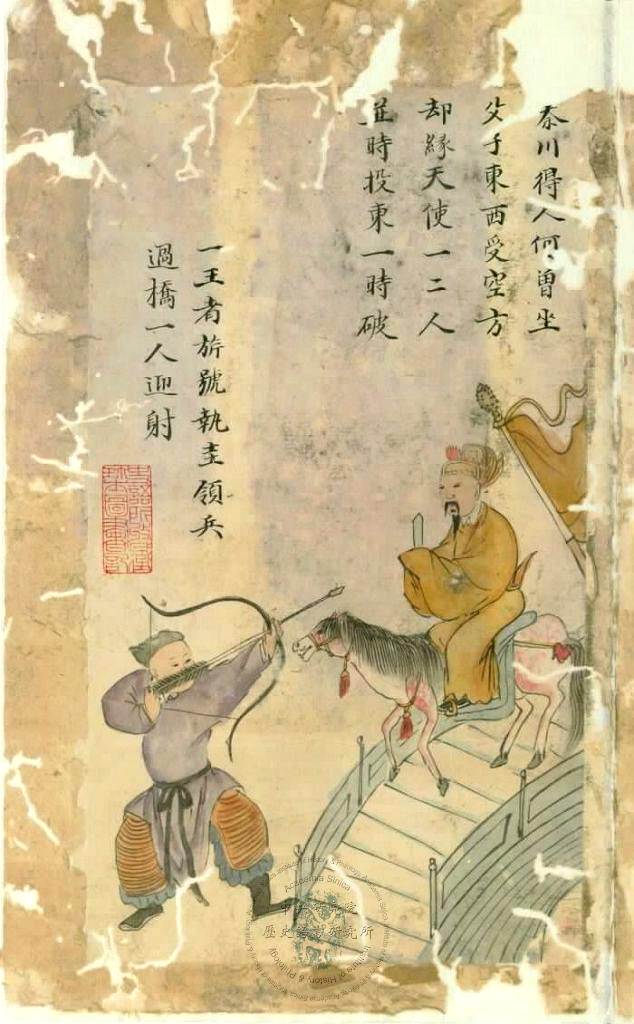 秦川得人何曾坐
父子東西受空方
却緣天使一二人
並時投東一時破
一王者旂號執圭領兵
過橋一人迎射
史語所收藏珍本圖書記
中央研究院
歷史語言研究所
Academia Sinica
Institute of History & Philology